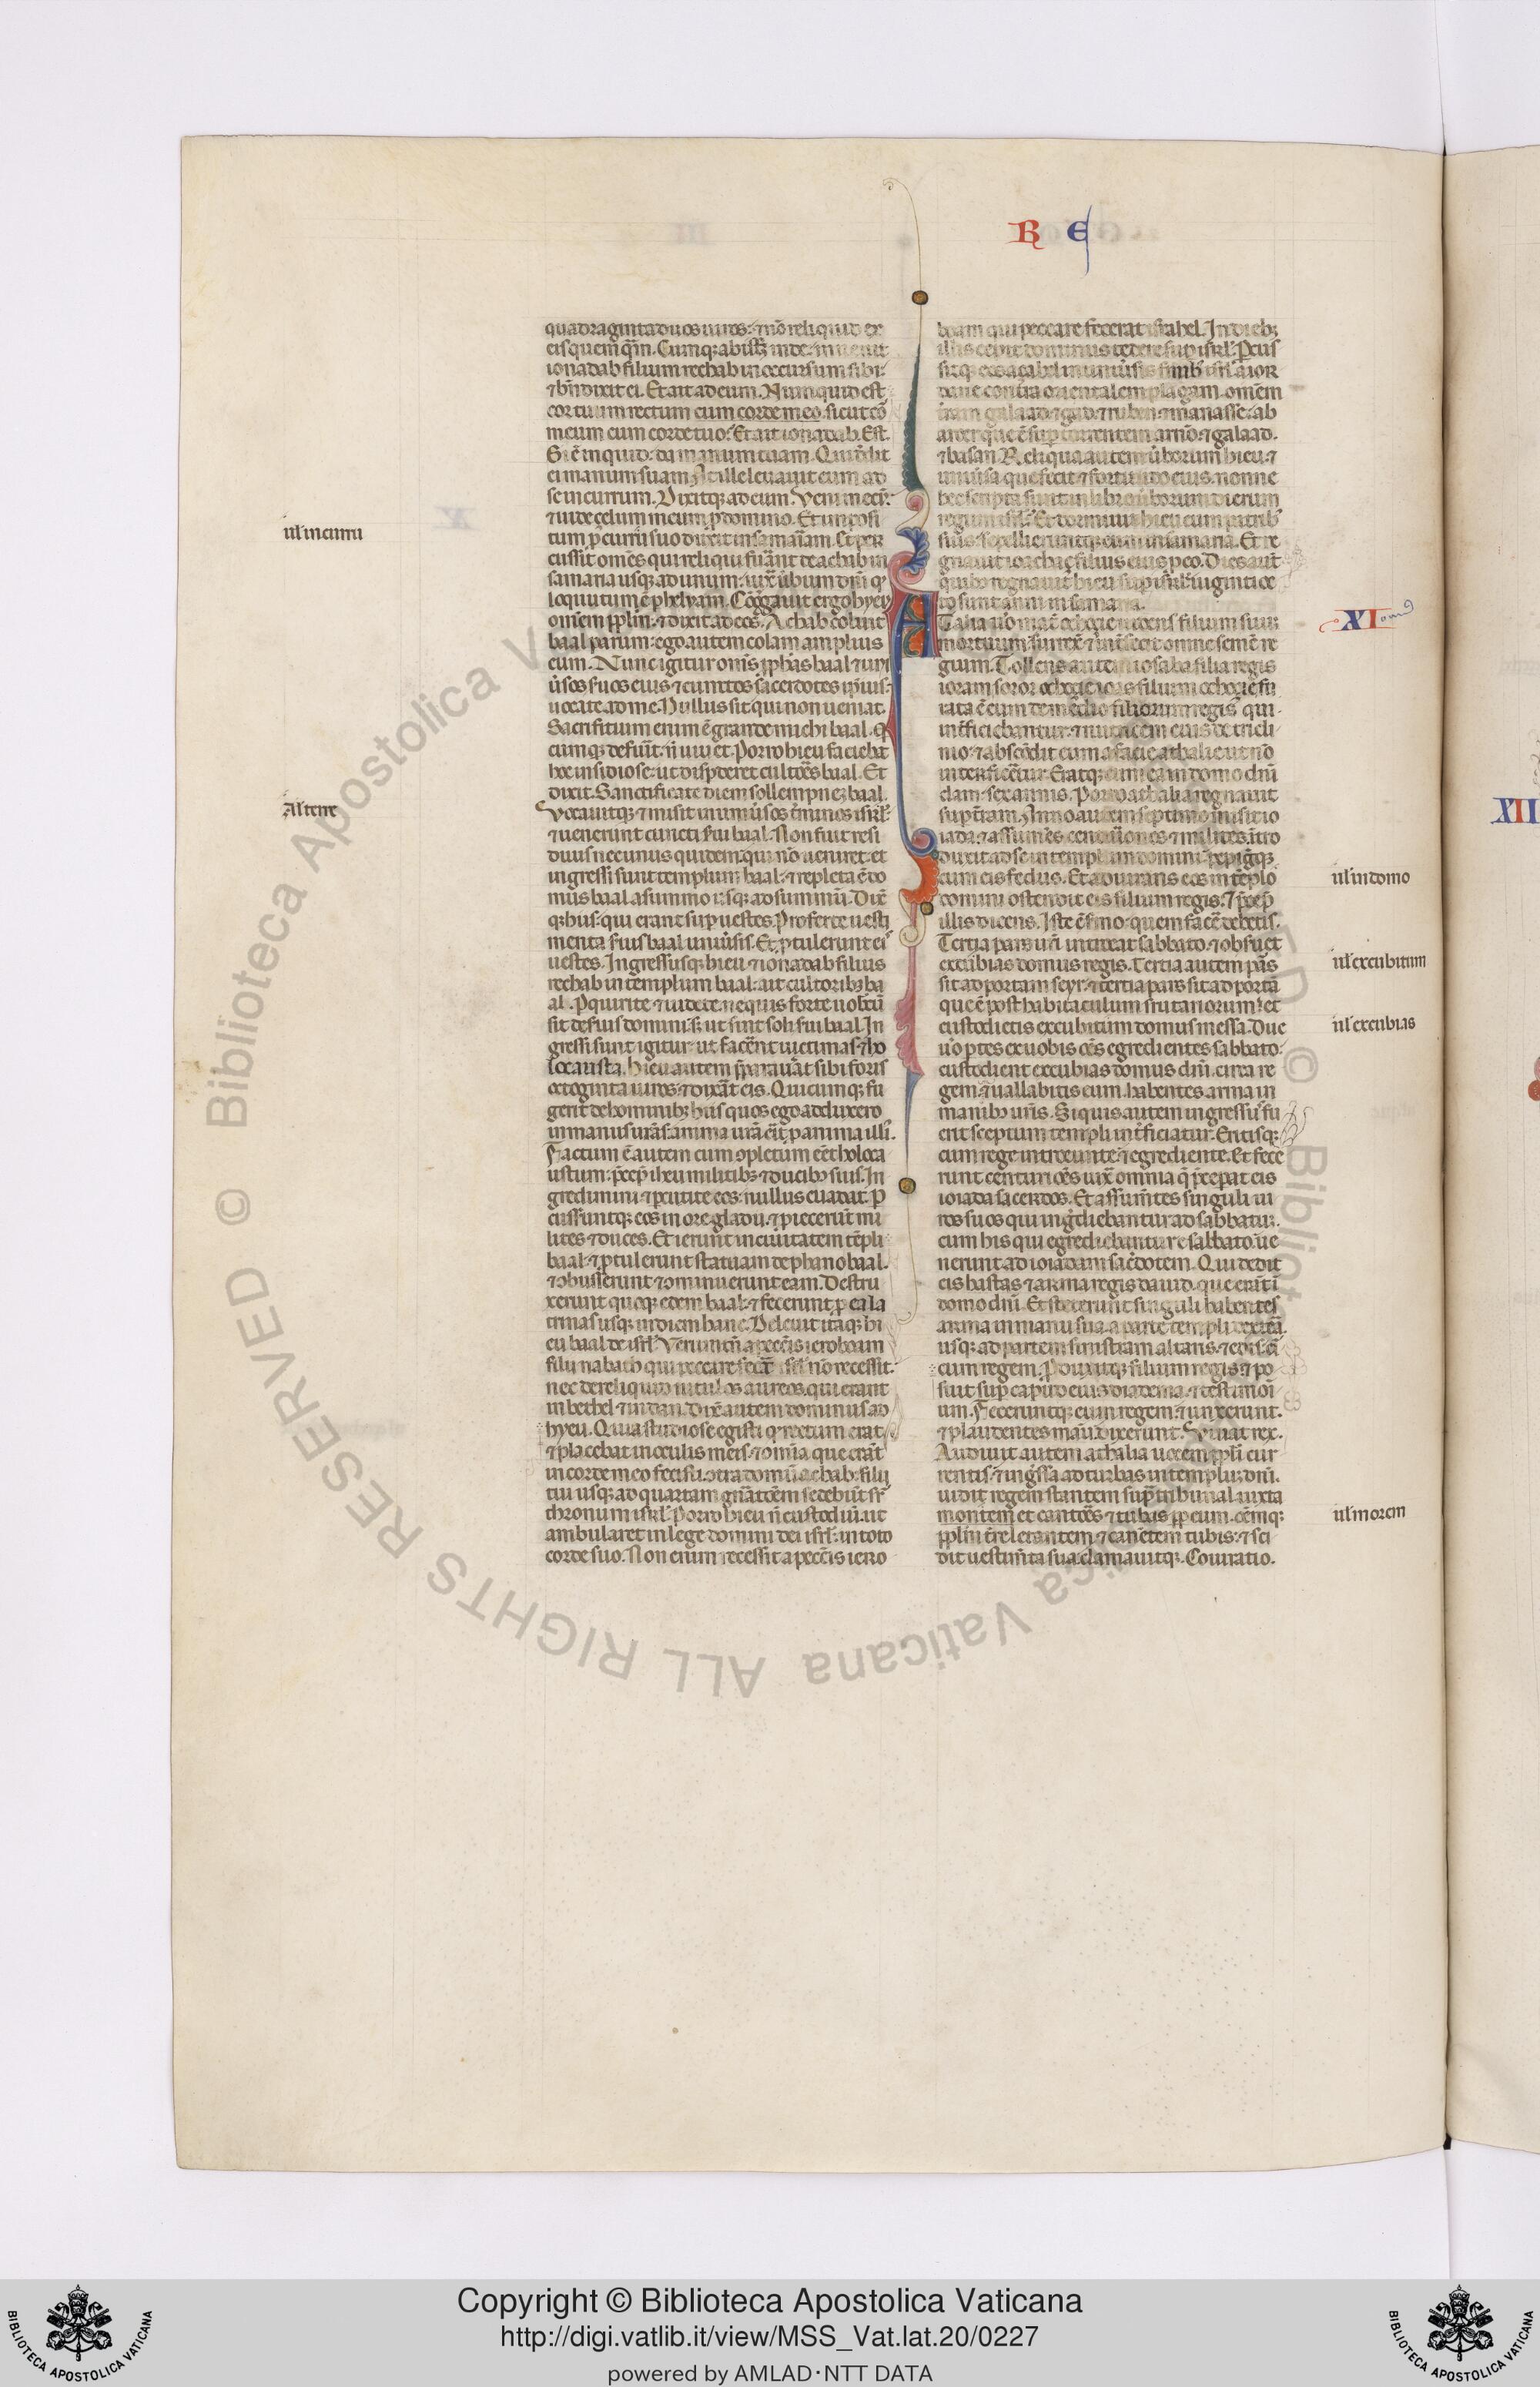 R E
quadraginta duos uiros: ⁊ nō reliquid ex
eis quemq̄m. Cumq; abiss; inde: inuenit
ionadab filium rechab in occursum sibi:
⁊ bn̄dixit ei. Et ait ad eum. Numquid est
cor tuum rectum cum corde meo. sicut cō
meum cum corde tuo? Et ait ionadab. Est.
Si ē inquid: da manum tuam. Qui dedit
ei manum suam. At ille leuauit eum ad
se in currum. Dixitq; ad eum. Veni mecū:
⁊ uide çelum meum p̄ domino. Et inposi
tum ī curru suo duxit in samariam. Et per
cussit omēs qui reliqui fuānt de achab in
samaria usq; ad unum: iuxͣ ubum dn̄i qͩ
loquutum ē p̄ helyam. Cōgͣgauit ergo hyeu
omnem pplm̄: ⁊ dixit ad eos. Achab coluit
baal parum: ego autem colam amplius
eum. Nunc igitur omīs pphās baal ⁊ uni
ūsos suos eius ⁊ cunctos sacerdotes ipius:
uocate ad me. Nullus sit qui non ueniat.
Sacrifitium enim ē grande michi baal. Q̄
cumq; defuīt: n̄ uiuet. Porro hieu faciebat
hoc insidiose: ut disperderet cultōes baal. Et
dixit. Sanctificate diem sollempnez baal.
Vocauitq; ⁊ misit in uniūsos tīminos isrl̄:
⁊ uenerunt cuncti sūi baal. Non fuit resi
duus nec unus quidem: qui nō ueniret. et
ingressi sunt templum baal: ⁊ repleta ē do
mus baal a summo usq; ad summū. Dixͭ
q; hiis: qui erant sup uestes. Proferte uesti
menta suis baal uniūsis. Et ptulerunt eis
uestes. Ingressusq; hieu ⁊ ionadab filius
rechab in templum baal: ait cultoribz ba
al. Pquirite ⁊ uidete ne quis forte uobcū
sit de suis domini: s; ut sint soli sūi baal. In
gressi sunt igitur: ut facēnt uictimas ⁊ ho
locausta. Hieu autem p̄parauāt sibi foris
octoginta uiros: ⁊ dixāt eis. Quicumq; fu
gerit de hominibz hiis quos ego adduxero
in manus urās: anima urā eīt p̄ anima illi.
Factum ē autem cum ɔpletum eēt holoca
ustum: p̄cep̄ iheu militibz ⁊ ducibz suis. In
gredimini ⁊ pcutite eos: nullus euadat. P
cusseruntq; eos in ore gladii. ⁊ piecerūt mi
lites ⁊ duces. Et ierunt in ciuitatem tēpli
baal: ⁊ ptulerunt statuam de phano baal.
⁊ ɔbusserunt ⁊ ɔminuerunt eam. Destru
xerunt quoq; edem baal: ⁊ fecerunt p ea la
trinas usq; in diem hanc. Deleuit itaq; hi
eu baal de isrl̄. Verumtn̄ a peccīs ieroboam
filii nabath qui peccare fecͭ isrl̄ nō recessit:
nec dereliquid uitulos aureos. qui erant
in bethel ⁊ in dan. Dixͭ autem dominus ad
hyeu. Quia studiose egisti qͩ rectum erat
⁊ placebat in oculis meis: ⁊ omnia que erāt
in corde meo fecisti ɔtra domū achab: filij
tui usq; ad quartam gnātōem sedebūt sr̄
thronum isrl̄. Porro hieu n̄ custodiū. ut
ambularet in lege domini dei isrl̄: in toto
corde suo. Non enim recessit a peccīs iero
boam qui peccare fecerat israhel. In diebz
illis cepit dominus tedere sup isrl̄. Pcus
sitq; eos açahel in uniūsis finibz isrl̄ a ior
dane contra orientalem plagam. omēm
trām galaad ⁊ gad. ⁊ ruben ⁊ manasse: ab
aroer que ē sup torrentem arnō. ⁊ galaad.
⁊ basan. Reliqua autem ūborum hieu ⁊
uniūsa que fecit ⁊ fortitudo eius. nonne
hec scripta sunt in libro ūborum dierum
regum isrl̄? Et dormiuit hieu cum patribz
suis: sepellieruntq; eum in samaria. Et re
gnauit ioachaç filius eius p eo. Dies aut̄
quibz regnauit hieu sup isrl̄: uiginti oc
to sunt anni in samaria.
Atalia ūo mat̄ ochoçie uidens filium suū
mortuum: surrexͭ ⁊ intfecit omne semē re
gium. Tollens autem iosaba filia regis
ioram soror ochoçie ioas filium ochoçie: fu
rata ē eum de medio filiorum regis qui
intficiebantur. ⁊ nutricem eius de tricli
nio: ⁊ abscōdit eum a facie athalie ut nō
interficēetur. Eratq; cum ea in domo dn̄i
clam: sex annis. Porro athalia regnauit
sup trām. Anno autem septimo misit io
iada: ⁊ assumēs centuriones ⁊ milites. ītro
duxit ad se in templum domini. pepigitq;
cum eis fedus. Et adiurans eos in tēplo
domini ostendit eis filium regis. ⁊ p̄cep̄
illis dicens. Iste ē sm̄o: quem facē debetis.
Tertia pars urī introeat sabbato. ⁊ obsūet
excubias domus regis. Tertia autem pās
sit ad portam seyr. ⁊ tertia pars sit ad portā
que ē post habitaculum scutariorum. et
custodietis excubitum domus messa. Due
ūo ptes ex uobis oēs egredientes sabbato:
custodient excubias domus dn̄i. circa re
gem: ⁊ uallabitis eum. habentes arma in
manibz urīs. Si quis autem ingressus fu
erit sceptum templi: intficiatur. Eritisq;
cum rege introeunte: ⁊ egrediente. Et fece
runt centuriōes iuxͣ omnia q̄ p̄cepat eis
ioiada sacerdos. Et assumētes singuli ui
ros suos qui ingdiebantur ad sabbatum.
cum his qui egrediebantur e sabbato. ue
nerunt ad ioiadam sac̄dotem. Qui dedit
eis hastas ⁊ arma regis dauid. que erāt ī
domo dn̄i. Et steterunt singuli habentes
arma in manu sua. a parte templi dextrā.
usq; ad partem sinistram altaris ⁊ edis. cī
cum regem. Pduxitq; filium regis: ⁊ po
suit sup caput eius diadema. ⁊ testimoī
um. Feceruntq; eum regem: ⁊ unxerunt.
⁊ plaudentes manū dixerunt. Viuat rex.
Audiuit autem athalia uocem ppli cur
rentis. ⁊ ingͬssa ad turbas in templuz dn̄i.
uidit regem stantem sup tribunal iuxta
montem. et cantōes ⁊ tubas ppe eum. oēmq;
pplm̄ tr̄e letantem ⁊ canētem tubis. ⁊ sci
dit uestimīta sua: clamauitq;. Coiuratio.
ul̄ in curru
Al terre
XI
XII
ul̄ in domo
ul̄ excubitum
ul̄ excubias
ul̄ morem
© Biblioteca Apostolica Vaticana ALL RIGHTS RESERVED © Biblioteca Apostolica Vaticana ALL RIGHTS RESERVED
Copyright © Biblioteca Apostolica Vaticana
http://digi.vatlib.it/view/MSS_Vat.lat.20/0227
powered by AMLAD·NTT DATA
BIBLIOTECA APOSTOLICA VATICANA
BIBLIOTECA APOSTOLICA VATICANA